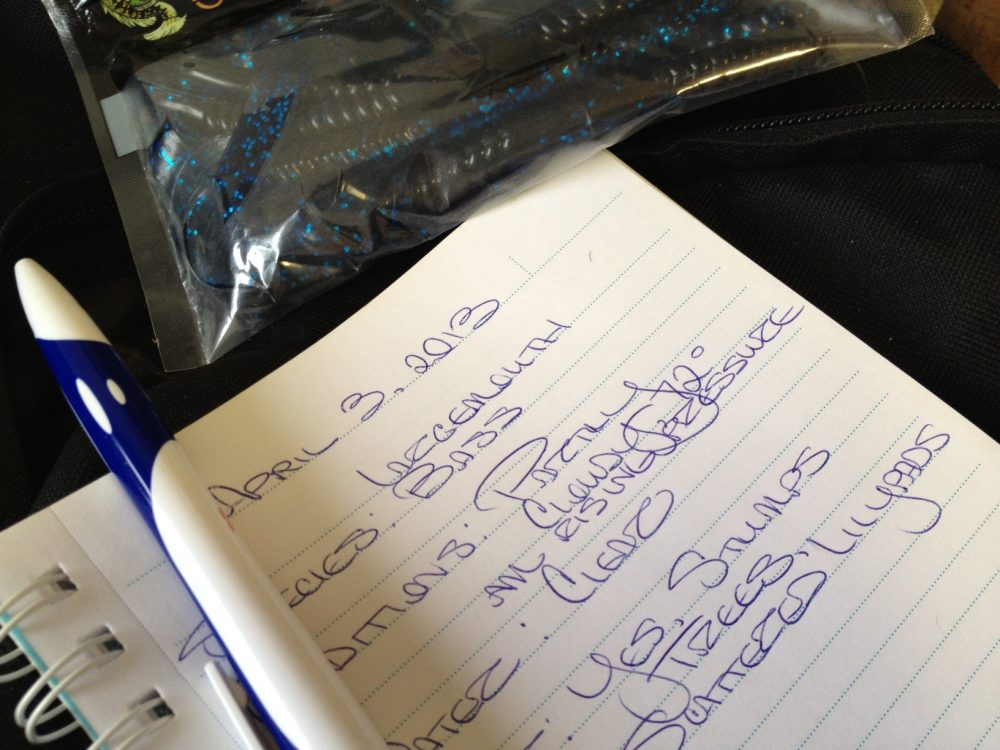 APRIL 3, 2013
ECIES: LARGEMOUTH
BASS
DITIONS: PARTLY
CLOUDY 72°
AND RISING PRESSURE
ATER: CLEAR
: YES. STUMPS
TREES,
SCATTERED LILLYPADS